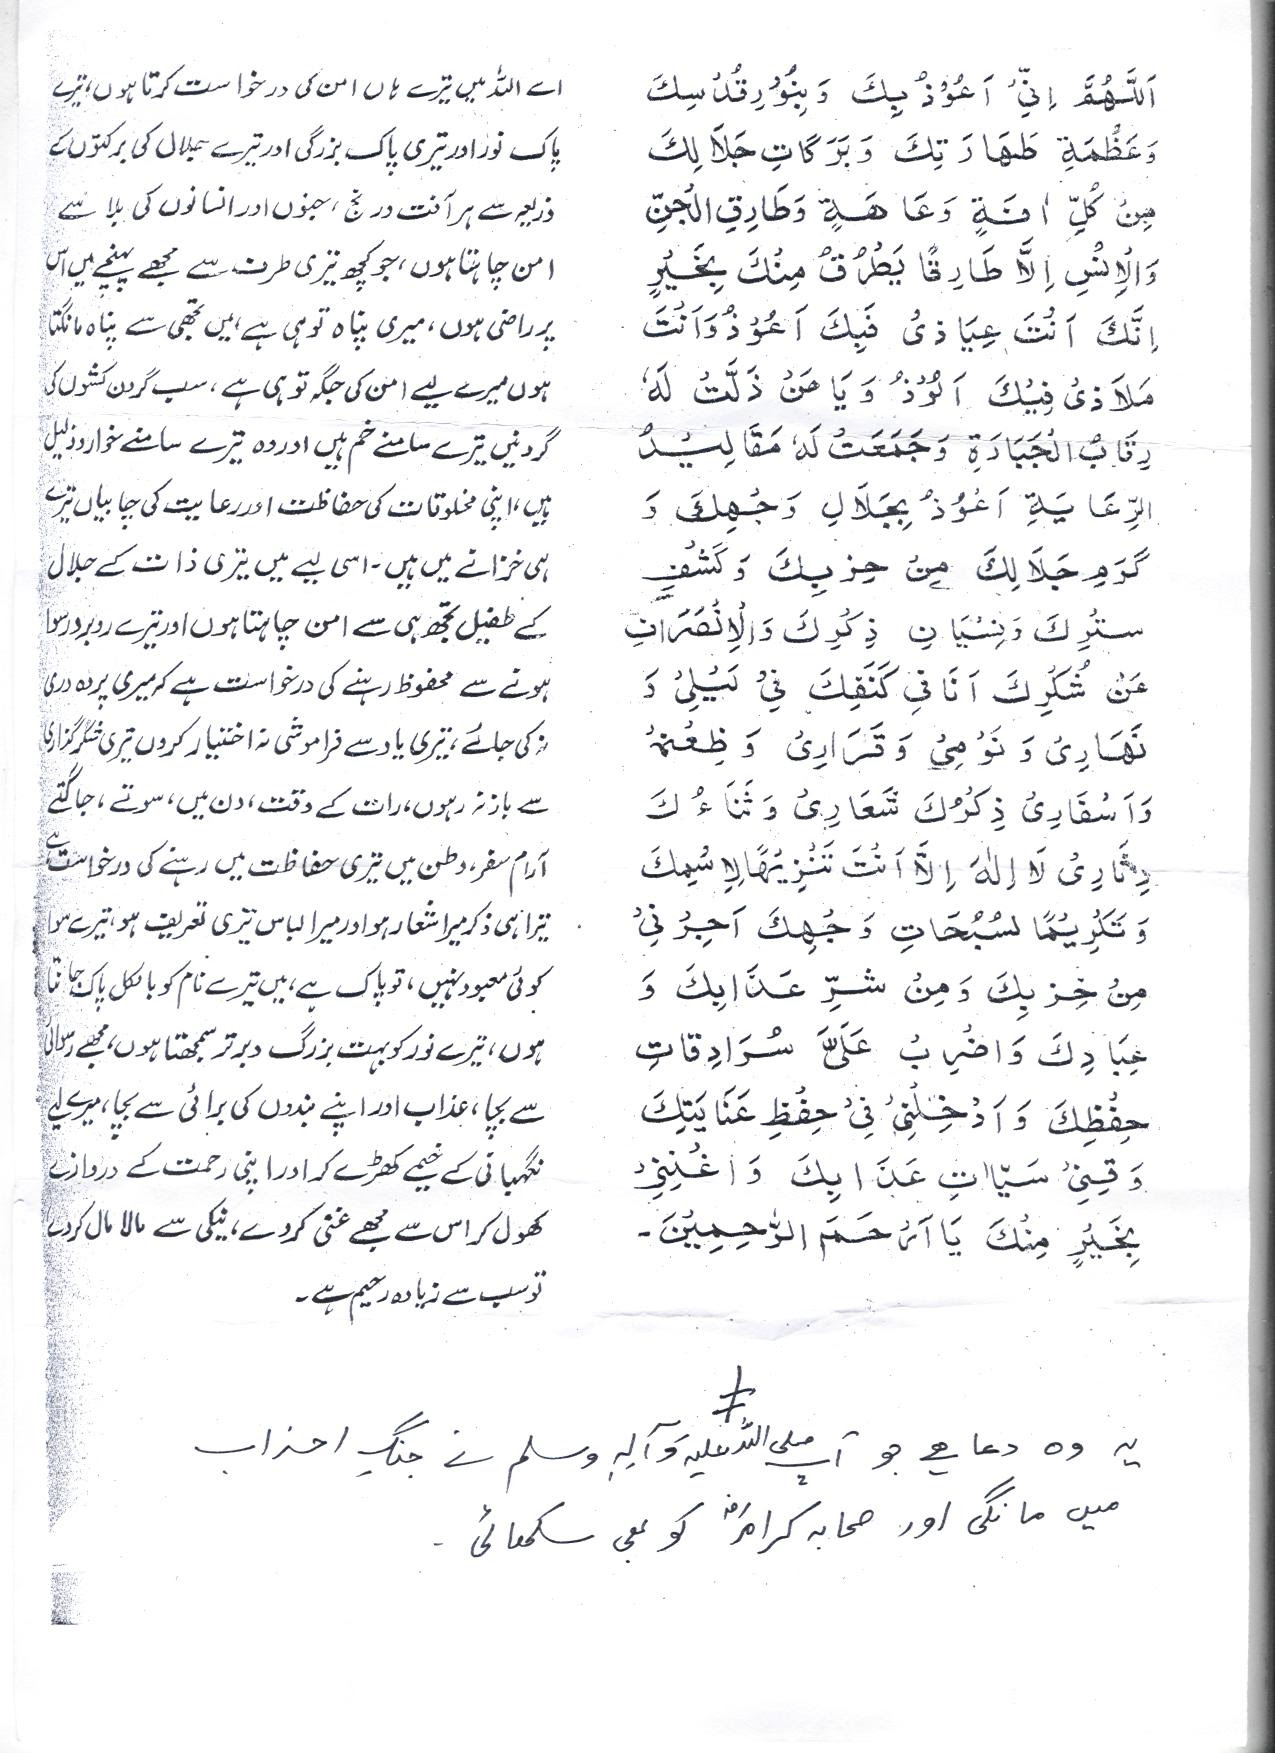 اَللّٰهُمَّ اِنِّیْ اَعُوْذُ بِكَ وَ بِنُوْرِ قُدْسِكَ
وَ عَظْمَةِ طَهَارَتِكَ وَ بَرَكَاتِ جَلَالِكَ
مِنْ كُلِّ اٰفَةٍ وَ عَاهَةٍ وَ طَارِقِ الْجِنِّ
وَ الْاِنْسِ اِلَّا طَارِقًا يَطْرُقُ مِنْكَ بِخَيْرٍ
اِنَّكَ اَنْتَ عِيَاذِیْ فَبِكَ اَعُوْذُ وَ اَنْتَ
مَلَاذِیْ فِيْكَ اَلُوْذُ وَ يَا مَنْ ذَلَّتْ لَهٗ
رِقَابُ الْجَبَابَرَةِ وَ جَمَعَتْ لَهٗ مَقَالِيْدُ
الرِّعَايَةِ اَعُوْذُ بِجَلَالِ وَجْهِكَ وَ
كَرَمِ جَلَالِكَ مِنْ خِزْيِكَ وَ كَشْفِ
سِتْرِكَ وَ نِسْيَانِ ذِكْرِكَ وَ الْاِنْصَرَافِ
عَنْ شُكْرِكَ اَنَا فِیْ كَنَفِكَ فِیْ لَيْلِیْ وَ
نَهَارِیْ وَ نَوْمِیْ وَ قَرَارِیْ وَ ظِعْنِیْ
وَ اَسْفَارِیْ ذِكْرُكَ شَعَارِیْ وَ ثَنَاءُكَ
دِثَارِیْ لَا اِلٰهَ اِلَّا اَنْتَ تَنْزِيْهًا لِاِسْمِكَ
وَ تَكْرِيْمًا لِسُبْحَاتِ وَجْهِكَ اَجِرْنِیْ
مِنْ خِزْيِكَ وَ مِنْ شَرِّ عَذَابِكَ وَ
عِبَادِكَ وَ اضْرِبْ عَلَیَّ سُرَادِقَاتِ
حِفْظِكَ وَ اَدْخِلْنِیْ فِیْ حِفْظِ عَنَايَتِكَ
وَ قِنِیْ سَيِّاٰتِ عَذَابِكَ وَ اغْنِنِیْ
بِخَيْرٍ مِنْكَ يَا اَرْحَمَ الرّٰحِمِيْنَ ۔
اے اللہ میں تیرے ہاں امن کی درخواست کرتا ہوں، تیرے
پاک نور اور تیری پاک بزرگی اور تیرے جلال کی برکتوں کے
ذریعہ سے ہر آفت و رنج، جنوں اور انسانوں کی بلا سے
امن چاہتا ہوں، جو کچھ تیری طرف سے مجھے پہنچے میں اس
پر راضی ہوں، میری پناہ تو ہی ہے، میں تجھی سے پناہ مانگتا
ہوں میرے لیے امن کی جگہ تو ہی ہے، سب گردن کشوں کی
گردنیں تیرے سامنے خم ہیں اور وہ تیرے سامنے خوار و ذلیل
ہیں، اپنی مخلوقات کی حفاظت اور رعایت کی چابیاں تیرے
ہی خزانے میں ہیں۔ اسی لیے میں تیری ذات کے جلال
کے طفیل تجھ ہی سے امن چاہتا ہوں اور تیرے روبرو رسوا
ہونے سے محفوظ رہنے کی درخواست ہے کہ میری پردہ دری
نہ کی جائے، تیری یاد سے فراموشی نہ اختیار کروں تیری شکر گذاری
سے باز نہ رہوں، رات کے وقت، دن میں، سوتے، جاگتے
آرام سفر، وطن میں تیری حفاظت میں رہنے کی درخواست ہے
تیرا ہی ذکر میرا شعار ہو اور میرا لباس تیری تعریف ہو، تیرے سوا
کوئی معبود نہیں، تو پاک ہے، میں تیرے نام کو بالکل پاک جانتا
ہوں، تیرے نور کو بہت بزرگ و برتر سمجھتا ہوں، مجھے رسوائی
سے بچا، عذاب اور اپنے بندوں کی برائی سے بچا، میرے لیے
نگہبانی کے خیمے کھڑے کر اور اپنی رحمت کے دروازے
کھول کر اس سے مجھے غنی کر دے، نیکی سے مالا مال کر دے
تو سب سے زیادہ رحیم ہے۔
یہ وہ دعا ہے جو آپ صلی اللہ علیہ وآلہٖ وسلم نے جنگِ احزاب
میں مانگی اور صحابہ کرامؓ کو بھی سکھائی ۔